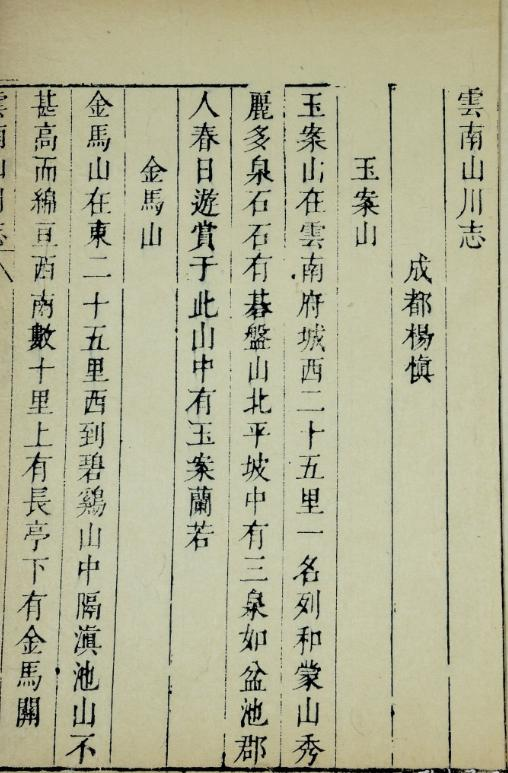 雲南山川志
成都楊慎
玉案山
玉案山在雲南府城西二十五里一名列和蒙山秀
麗多泉石石有碁盤山北平坡中有三泉如盆池郡
人春日遊賞于此山中有玉案蘭若
金馬山
金馬山在東二十五里西到碧鷄山中隔滇池山不
甚高而綿亘西南數十里上有長亭下有金馬關
雲南山川志